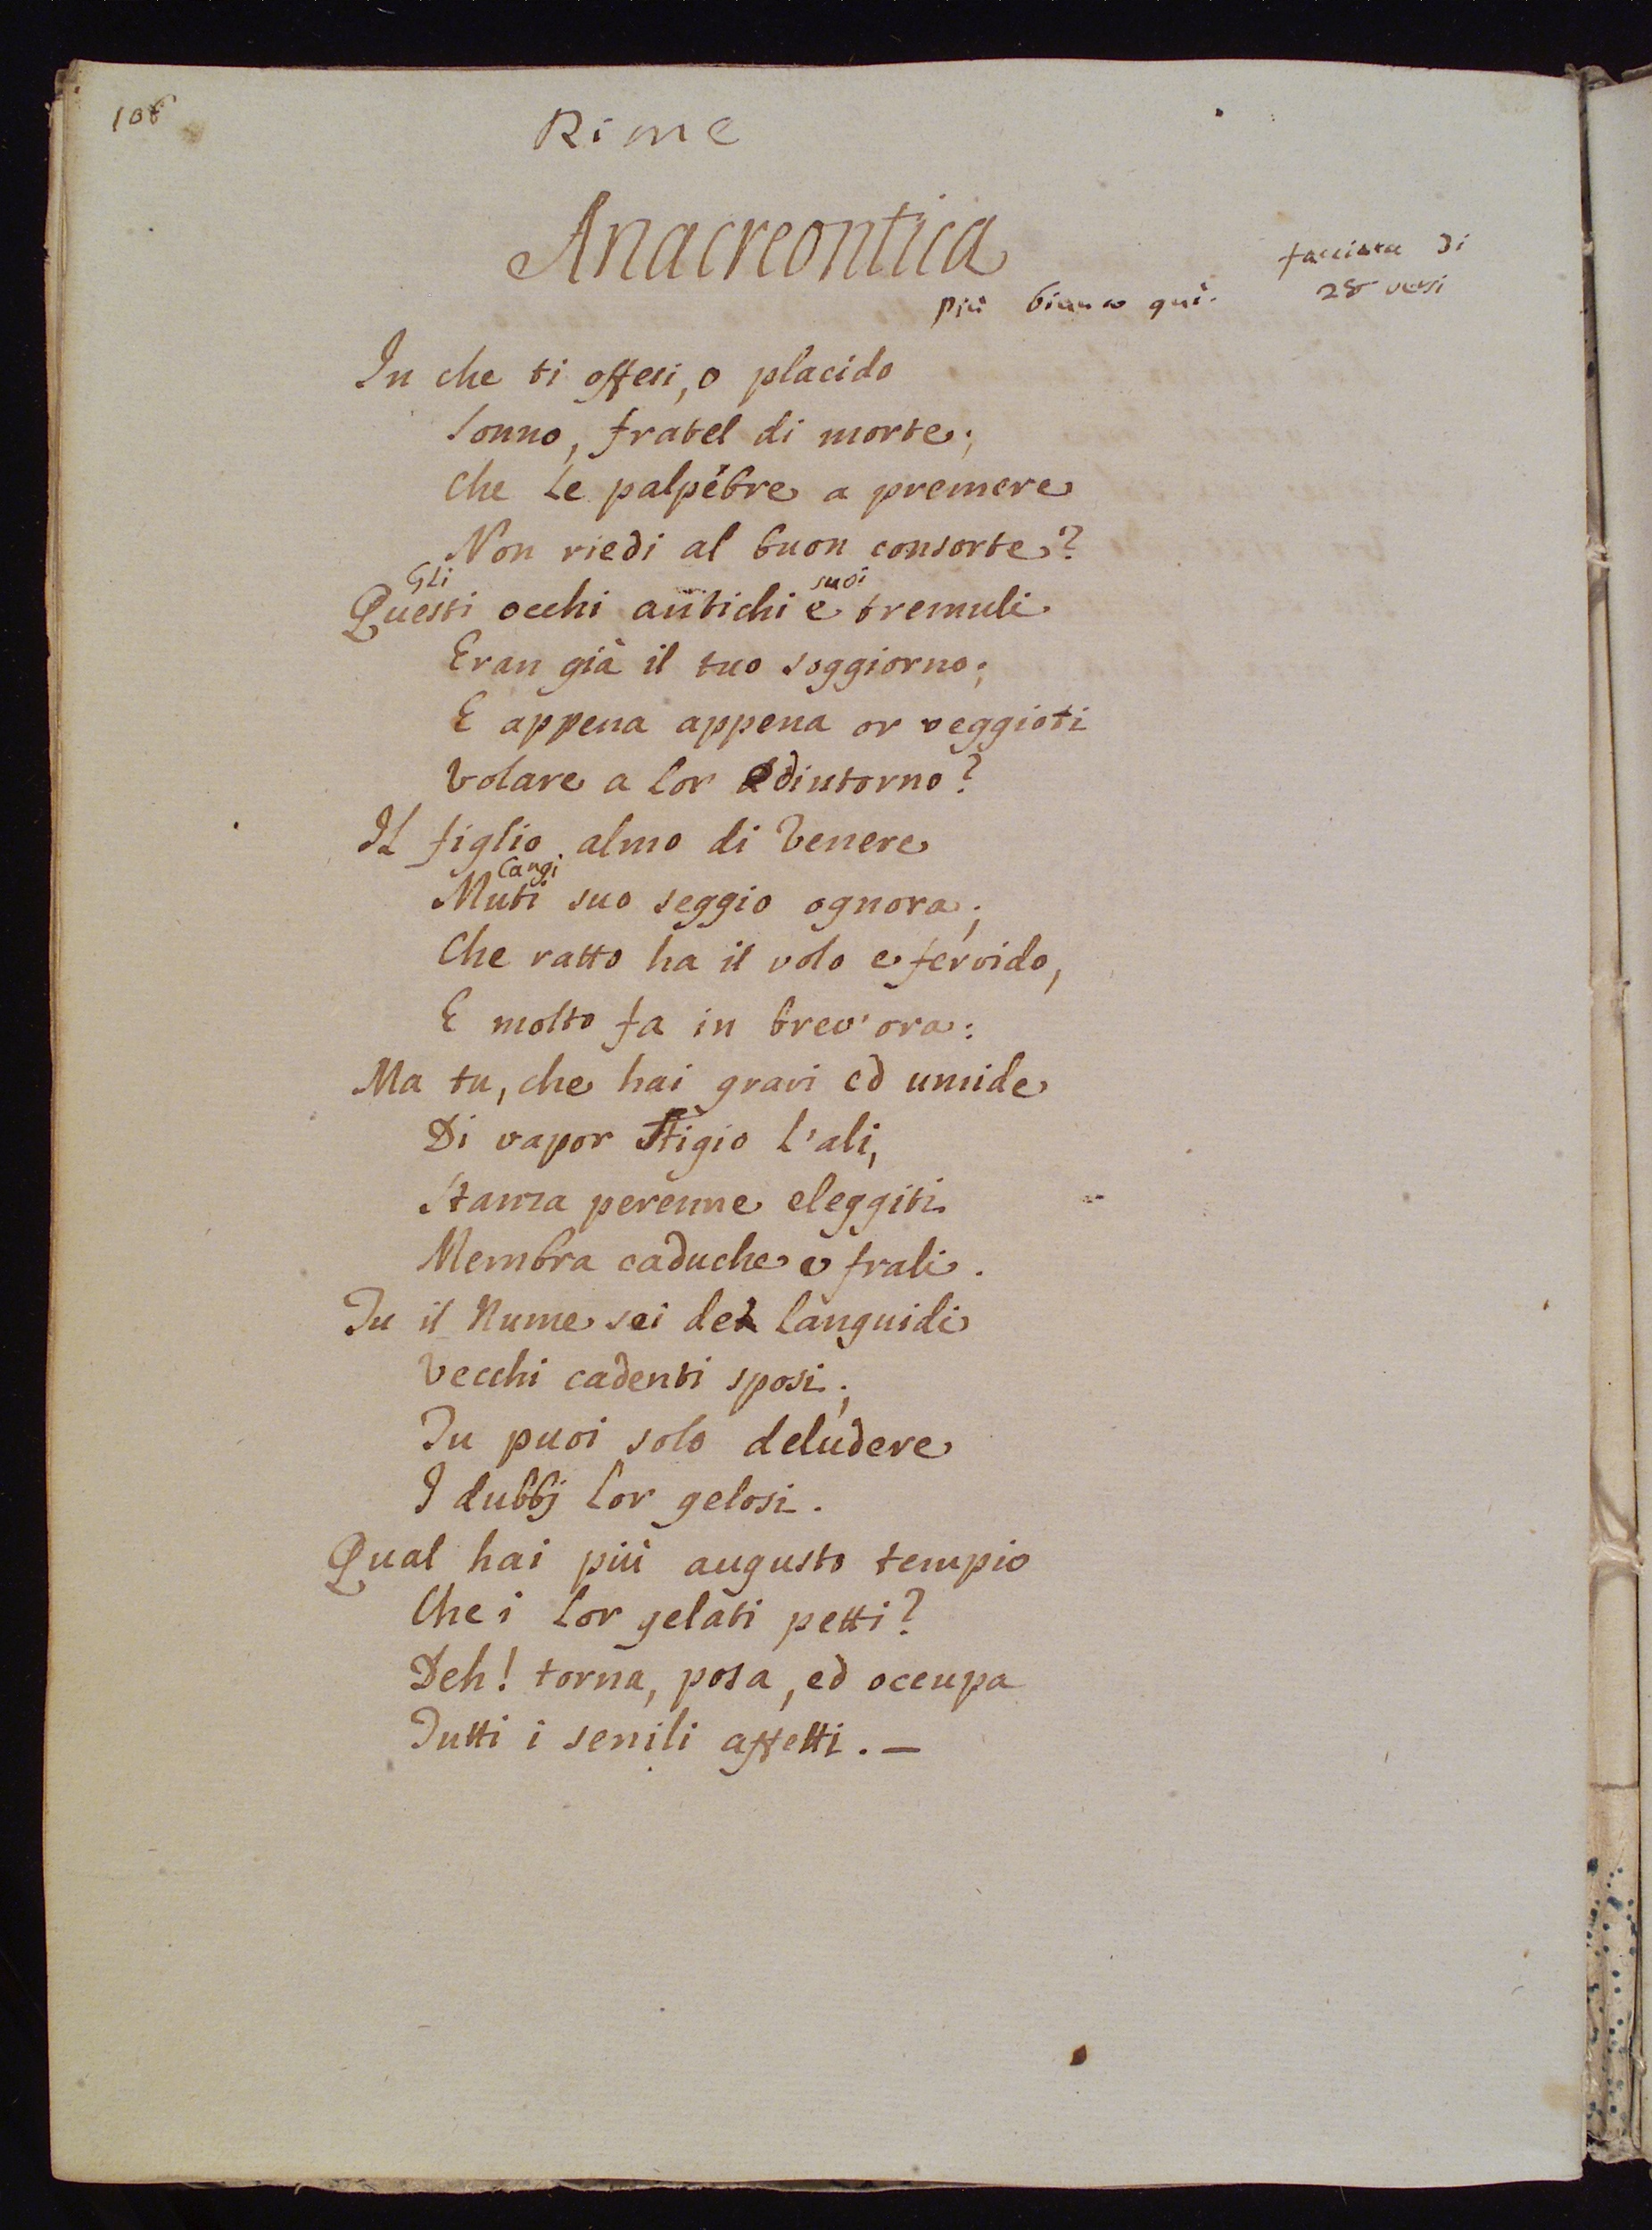 Rime
Anacreontica
facciata di
28 versi
più bianco quì.
In che ti offesi, o placido
Sonno, fratel di morte;
Che le palpèbre a premere
Non riedi al buon consorte?
Gli suoi
Questi occhi antichi e tremuli
Eran già il tuo soggiorno;
E appena appena or veggioti
Volare a lor dintorno?
Il figlio almo di Venere
Cangi
Muti suo seggio ognora;
Che ratto ha il volo e fervido,
E molto fa in brev'ora:
Ma tu, che hai gravi ed umide
Di vapor Stigio l'ali,
Stanza perenne eleggiti
Membra caduche e frali.
Tu il Nume sei de' languidi
Vecchi cadenti sposi;
Tu puoi solo deludere
I dubbj lor gelosi.
Qual hai più augusto tempio
Che i lor gelati petti?
Deh! torna, posa, ed occupa
Tutti i senili affetti. —